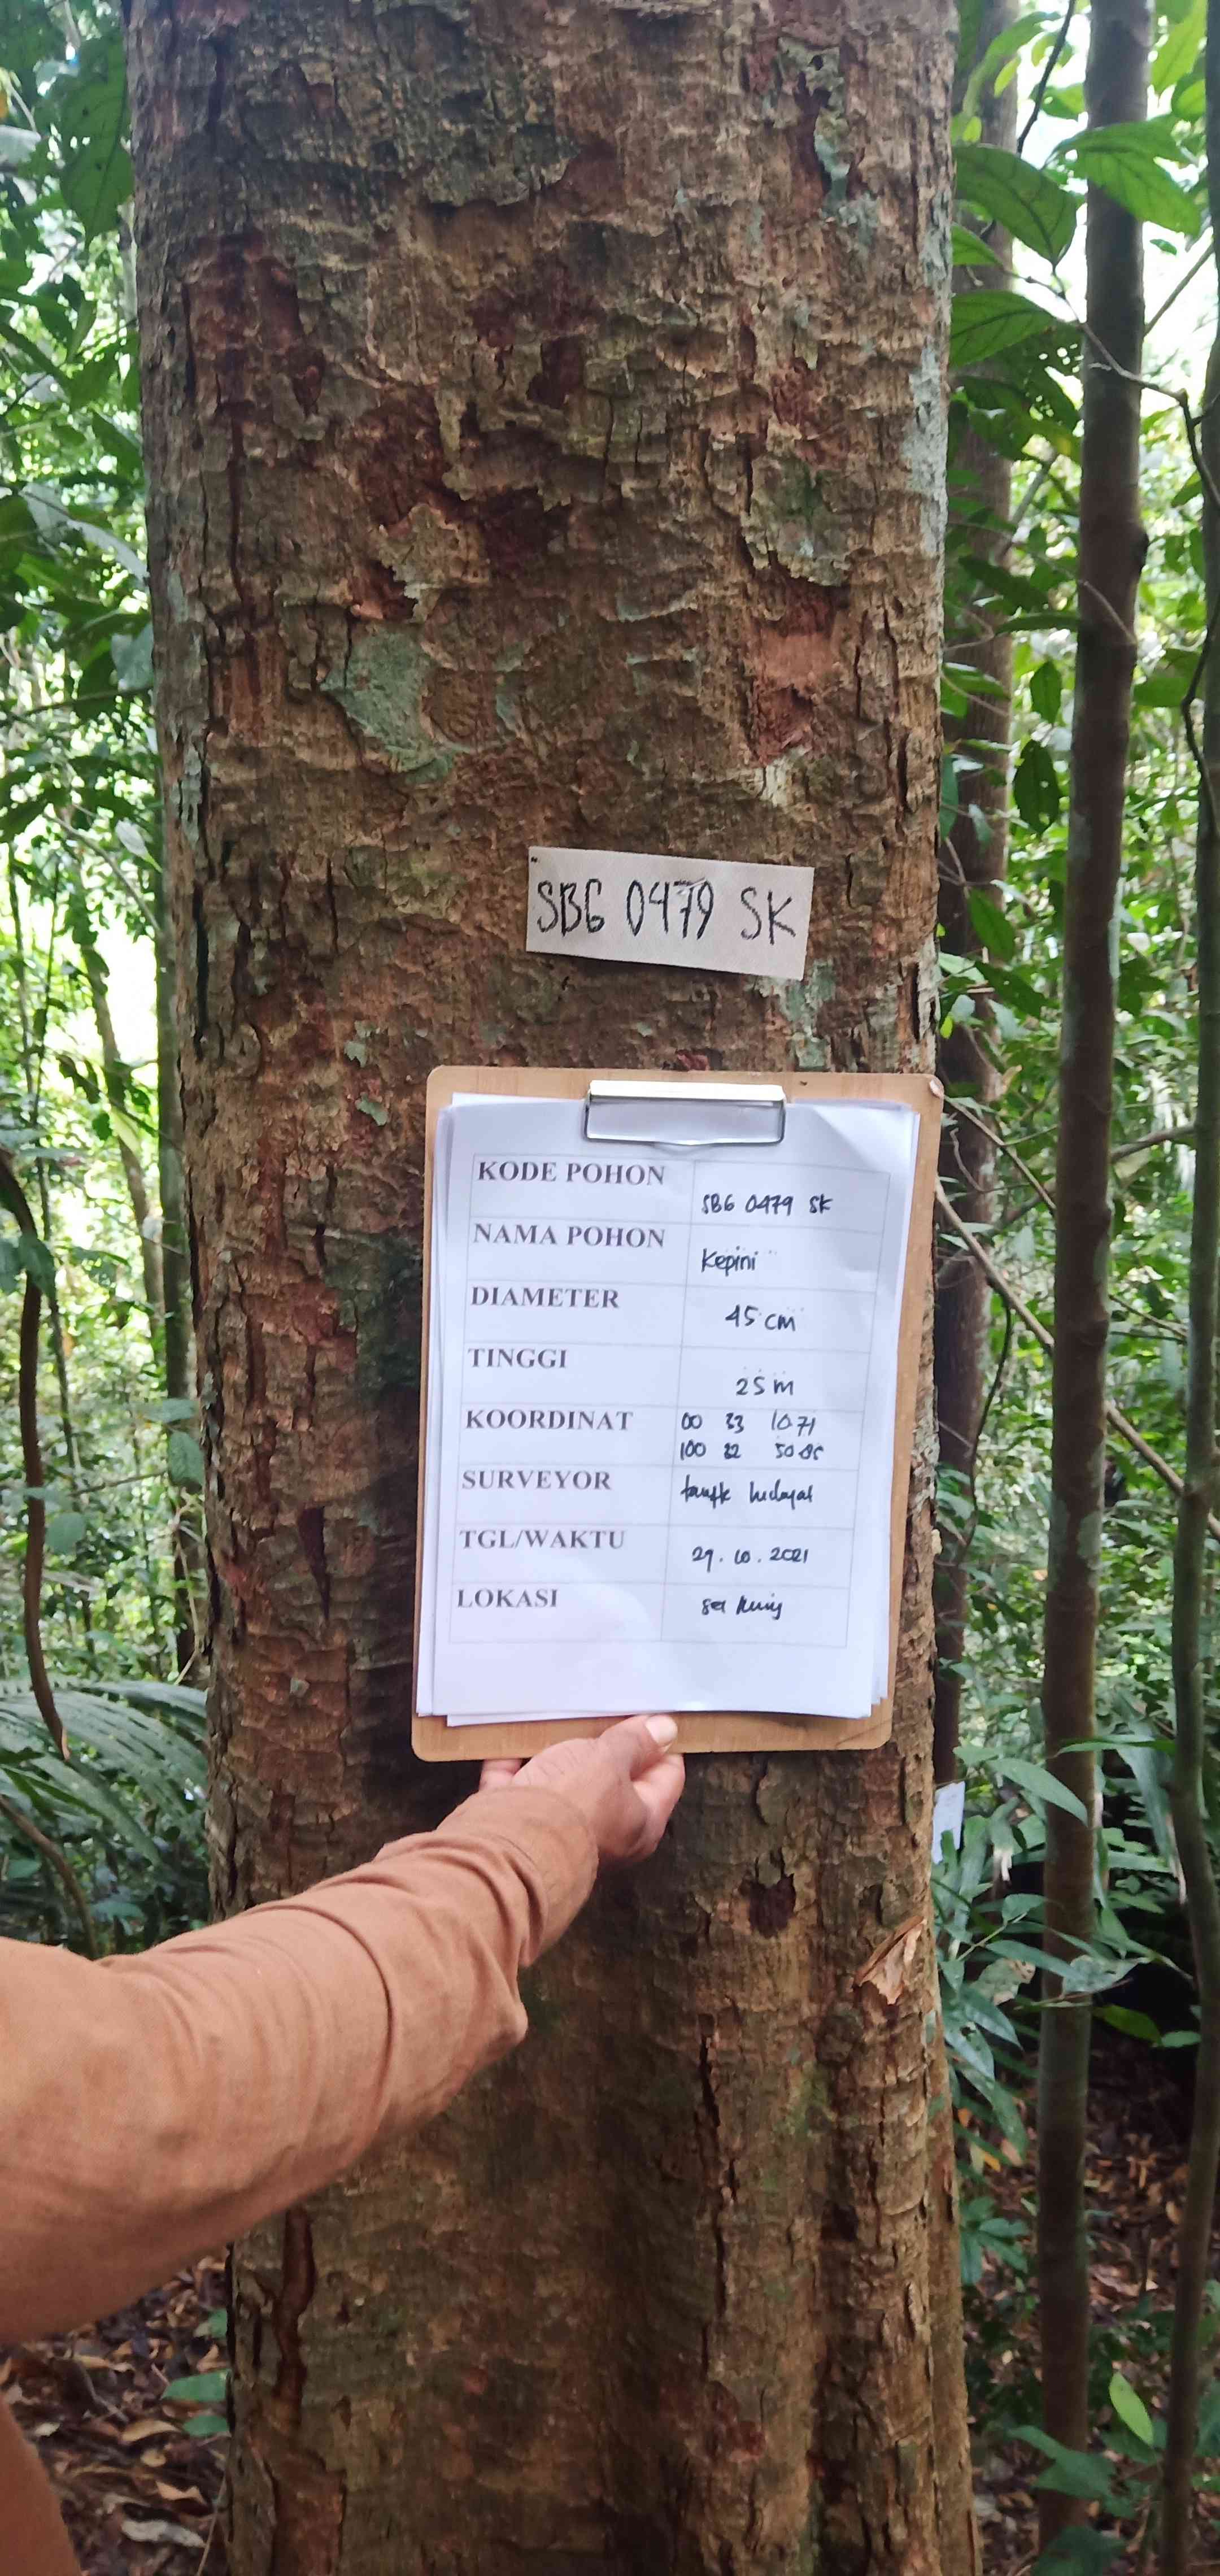 SBG 0479 SK
KODE POHON SBG 0479 SK
NAMA POHON Kepini
DIAMETER 45 cm
TINGGI 25 m
KOORDINAT 00 33 10.71
100 32 50.85
SURVEYOR taufik hidayat
TGL/WAKTU 29. 10. 2021
LOKASI sei